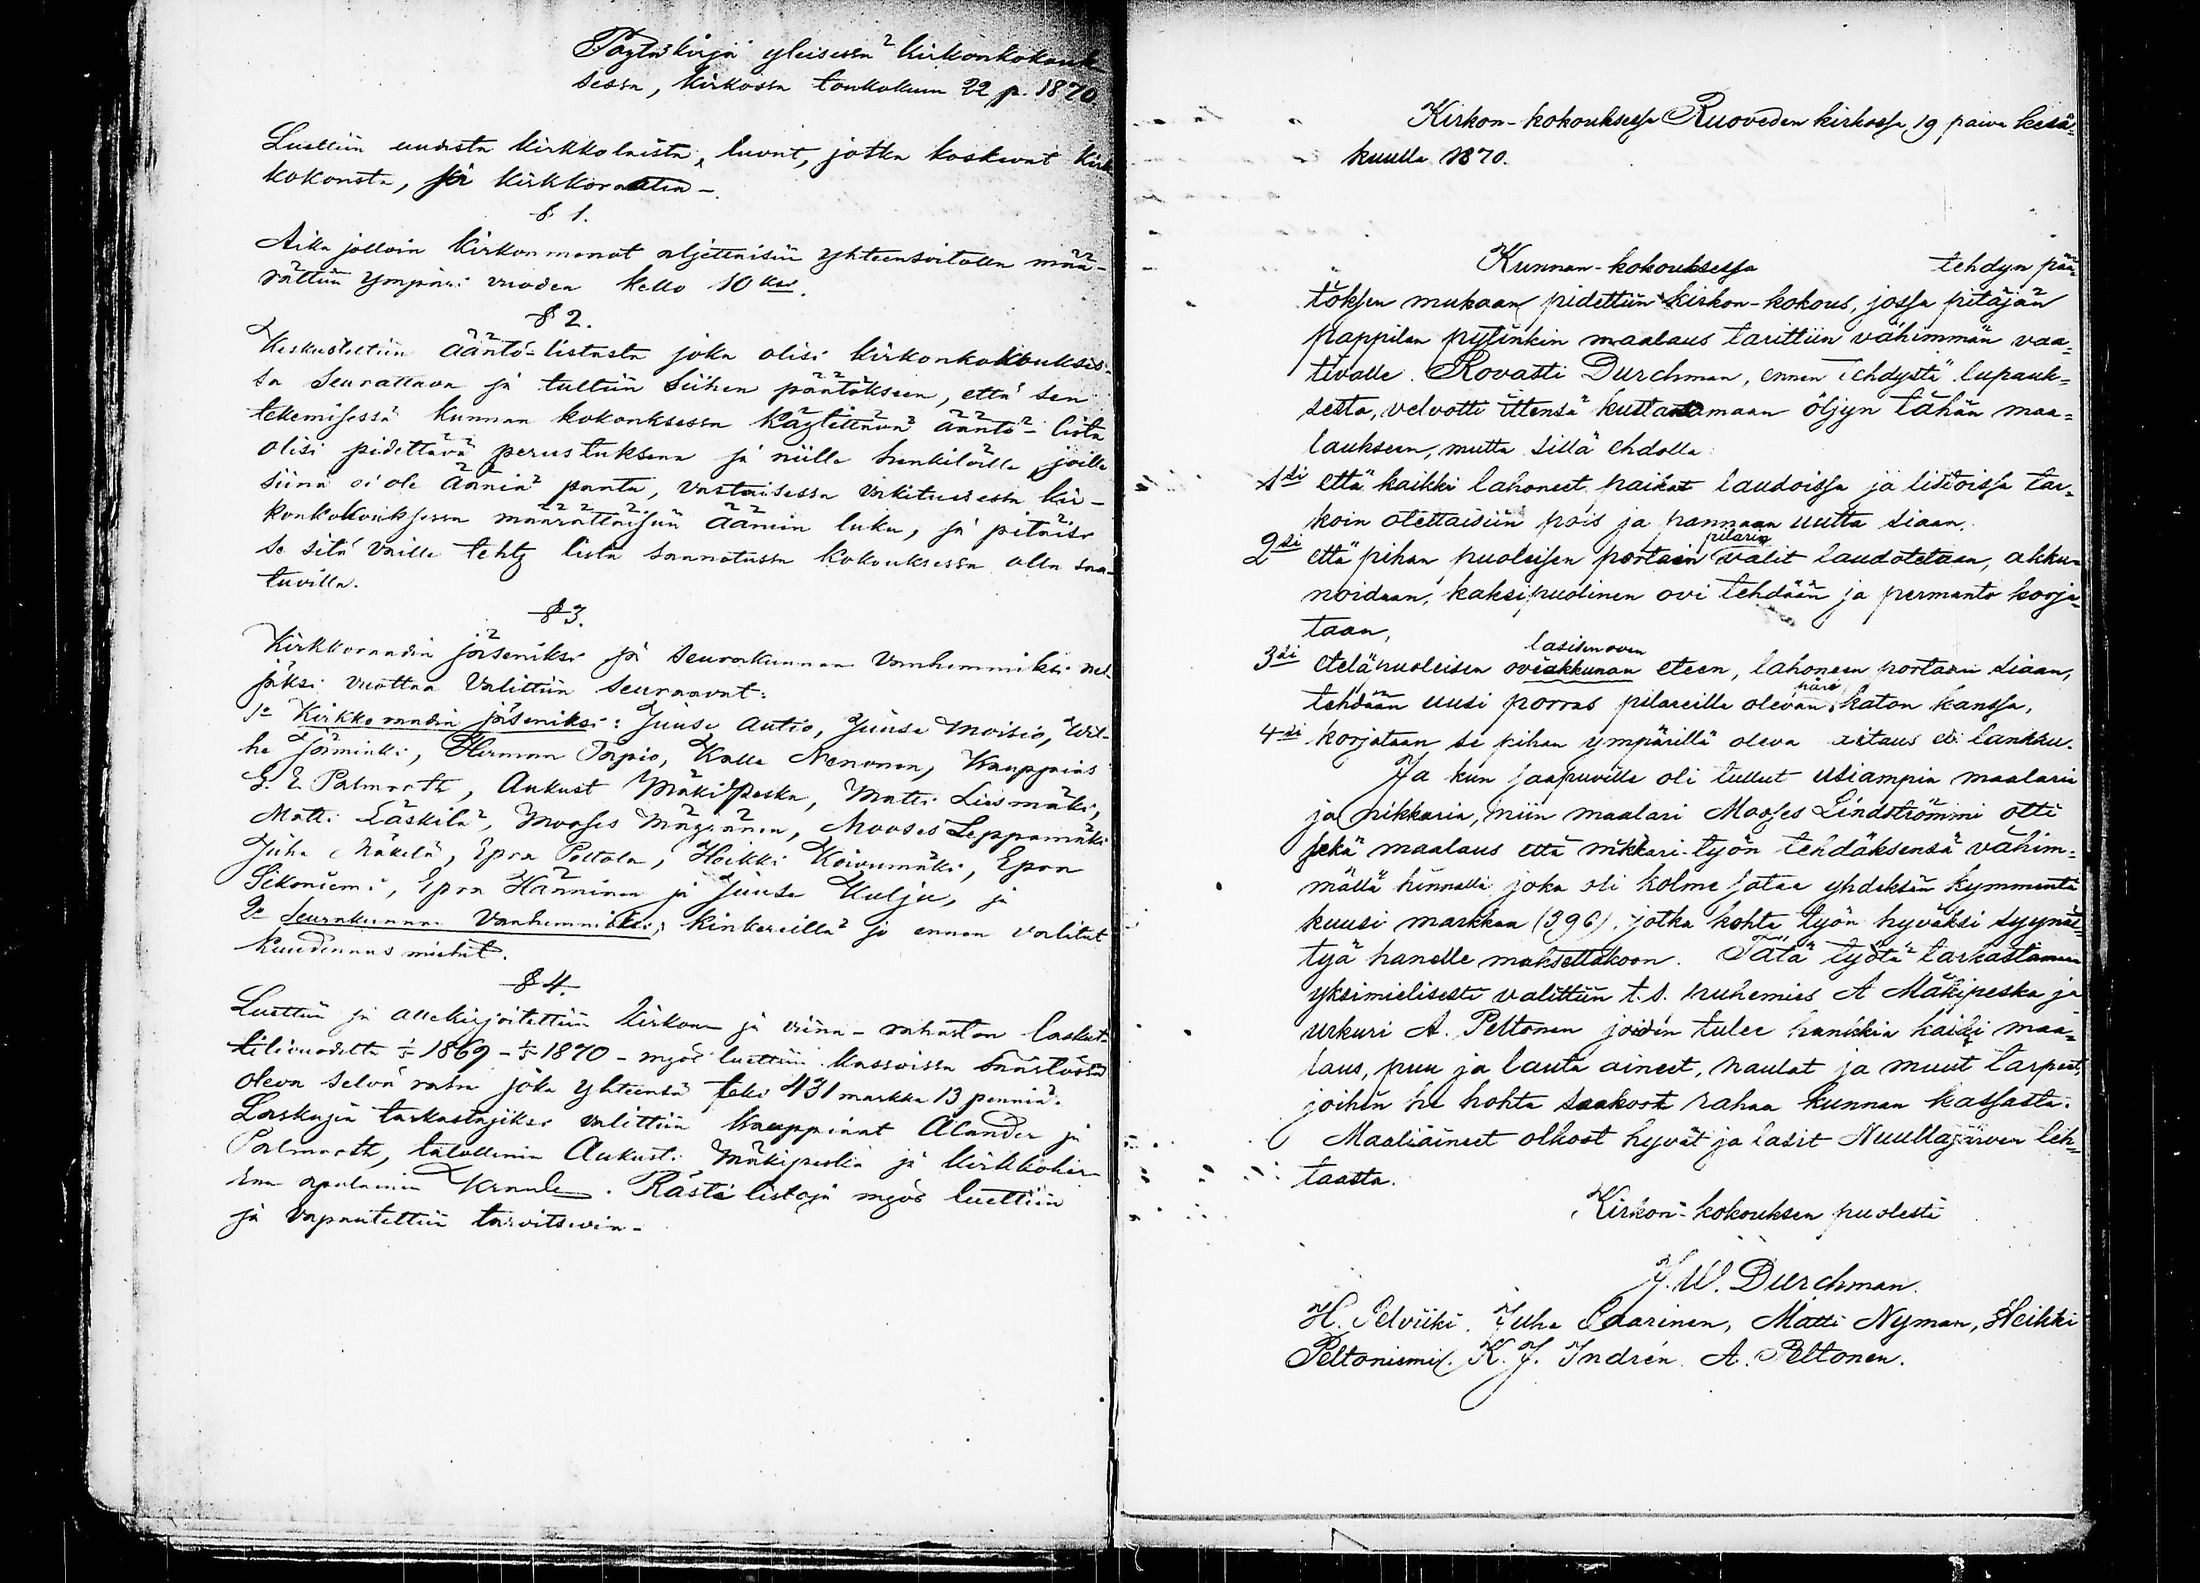 Pöytäkirja yleisessä kirkonkokouk-
sessa, kirkossa toukokuun 22 p. 1870.
Luettiin uudesta kirkkolaista, luvut, jotka koskevat kirk
kokousta, ja kirkkoraatia -
§ 1.
Aika jolloin kirkonmenot aljettaisiin yhteensoitolla mää-
rättiin ympäri vuoden kello 10
§ 2.
Keskusteltiin ääntö-listasta joka olisi kirkonkokouksis-
sa seurattava ja tultiin siihen päätökseen, että sen
tekemisessä kunnan kokouksessa käytettävä ääntö-lista
olisi pidettävä perustuksena ja niille henkilöille joille
siinä ei ole ääniä pantu, vastaisessa kir-
konkokouksessa määrättäisiin äänien luku, ja pitäisi
se sitä vaille tehty lista sanotussa kokouksessa olla saa-
tuvilla.
§ 3.
Kirkkoraadin jäseniksi ja seurakunnan vanhemmiksi nel-
jäksi vuottaa valittiin seuraavat:
1o Kirkkoraadin jäseniksi: Juuse Autio, Juuse Moisio, Wil-
he Jäminki, Herman Tapio, Kalle Nenonen, Kauppias
G. E. Palmroth, Aukust Mäkipeska, Matti Liesmäki,
Matti Läskilä, Mooses Mäyränen, Mooses Leppämäki
Juha Mäkelä, Epra Peltola, Heikki Koivumäki, Epra
Sikoniemi, Epra Hänninen ja Juuse Kulju, ja
2o Seurakunnan Vanhemmiksi; kinkereillä jo ennen valitut
kuudennusmiehet.
§ 4.
Luettiin ja allekirjoitettiin kirkon ja viina-rahaston laskut
tilivuodelta 1/5 1869 - 1/5 1870 - myös luettiin kassoissa säästössä
oleva selvä raha joka yhteensä teki 431 markka 13 penniä.
Laskujen tarkastajiksi valittiin kauppiaat Alander ja
Palmroth, talollinen Aukusti Mäkipeska ja kirkkoher-
ran apulainen . Rästi listoja myös luettiin
ja vapautettiin tarvitsevia -
Kirkon-kokouksessa Ruoveden kirkossa 19 päivä kesä-
kuulla 1870.
Kunnan-kokouksessa tehdyn pää-
töksen mukaan pidettiin kirkon-kokous, jossa pitäjän
pappilan pytinkin maalaus tarittiin vähimmän vaa-
tivalle. Rovasti Durchman, ennen tehdystä lupauk-
sesta, velvotti ittensä kustantamaan öljyn tähän maa-
laukseen, mutta sillä ehdolla:
1ksi että kaikki lahoneet paikat laudoissa ja listoissa tar-
koin otettaisiin pois ja pannaan uutta siaan,
2ksi että pihan puoleisen portain pilarin välit laudotetaan, akku-
noidaan, kaksipuolinen ovi tehdään ja permanto korja-
taan,
3ksi eteläpuoleisen oviakkunan lasisen oven eteen, lahoneen portaan siaan,
tehdään uusi porras pilareilla olevan päre katon kanssa,
4ksi korjataan se pihan ympärillä oleva aitaus
Ja kun saapuville oli tullut usiampia maalaria
ja nikkaria, niin maalari Mooses Lindströmmi otti
sekä maalaus että nikkari-työn tehdäksensä vähim-
mällä hinnalla joka oli kolme sataa yhdeksän kymmentä
kuusi markkaa (396), jotka kohta työn hyväksi syynät-
tyä hänelle maksettakoon. Tätä työtä tarkastamaan
yksimielisesti valittiin t.s. ruhemies A Mäkipeska ja
urkuri A. Peltonen joidin tulee hankkia kaikki maa-
laus, puu ja lauta aineet, naulat ja muut tarpeet,
joihin he kohta saakoot rahaa kunnan kassasta.
Maaliaineet olkoot hyvät ja lasit Nuutajärven teh-
taasta.
Kirkon-kokouksen puolesta
J. W. Durchman.
H. Selviiki. Juha Laarinen, Matti Nyman, Heikki
Peltoniemi. K. J. Indrén. A. Peltonen.